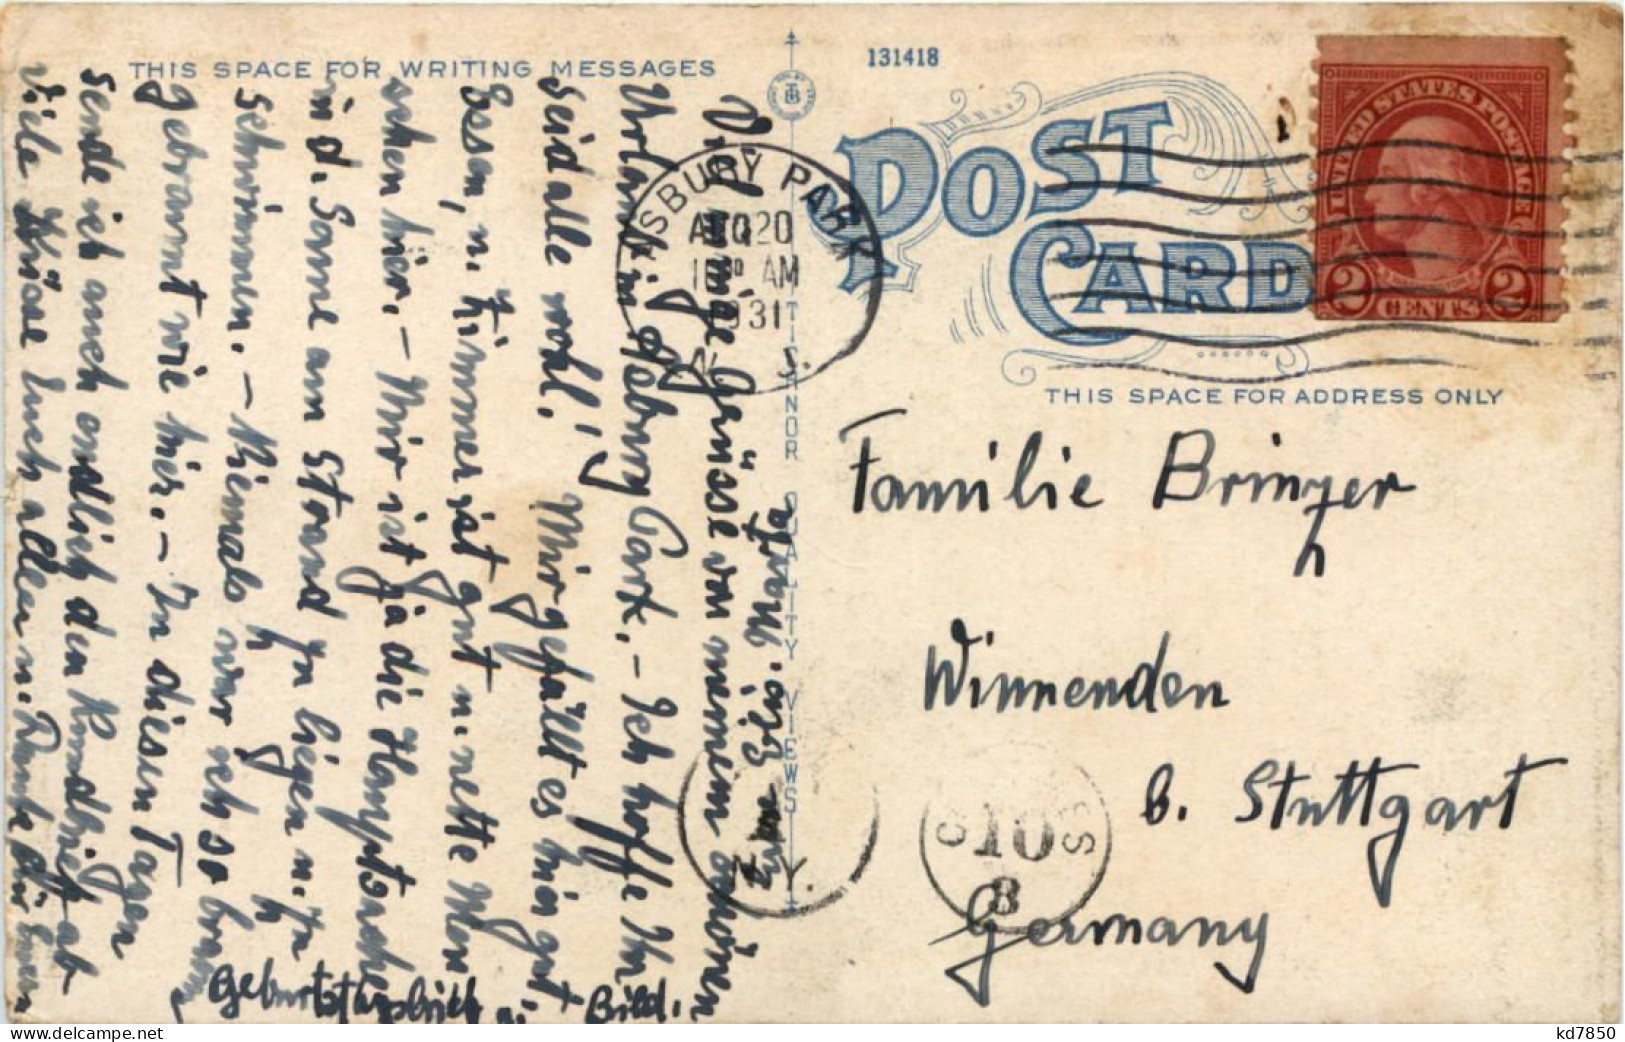 THIS SPACE FOR WRITING MESSAGES
131418
POST
CARD
THIS SPACE FOR ADDRESS ONLY
UNITED STATES POSTAGE
2 CENTS 2
ASBURY PARK
AUG 20
AM
1931
N. J.
QUALITY VIEWS
Viele innige Grüsse von meinem schönen
Urlaub in Asbury Park. – Ich hoffe Ihr
seid alle wohl! Mir gefällt es hier gut,
Essen, u. Zimmer ist gut u. nette Men
schen hier. – Mir ist ja die Hauptsache
in d. Sonne am Strand zu liegen u. zu
schwimmen. – Niemals war ich so braun
gebrannt wie hier. – In diesen Tagen
sende ich auch endlich den Rundbrief ab
Viele Küsse Euch allen u. Dank für Euern
Geburtstagsbrief u. Bild.
Familie Brinzer
Winnenden
b. Stuttgart
Germany
N. Y.
10
kd7850